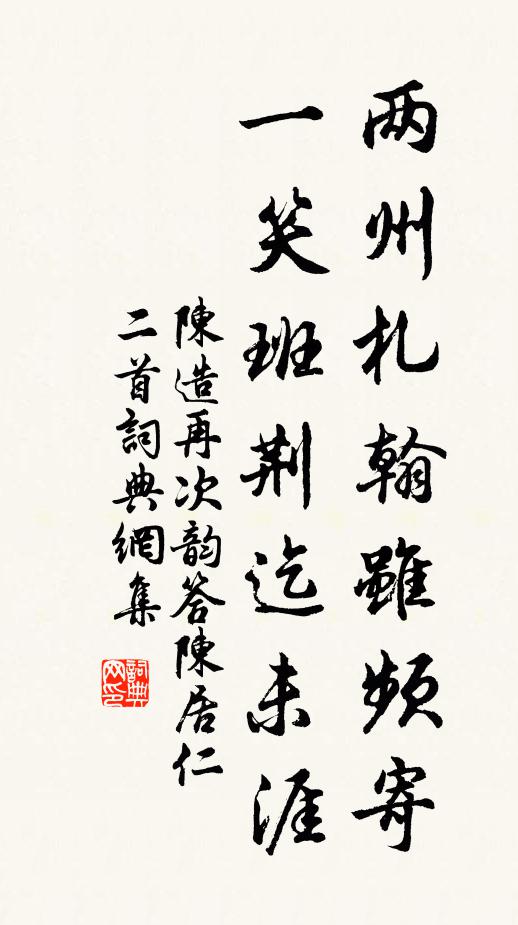 两州札翰雖頻寄
一笑班荆迄未涯
陳造再次韵答陳居仁
二首詞典網集
詞典
网印